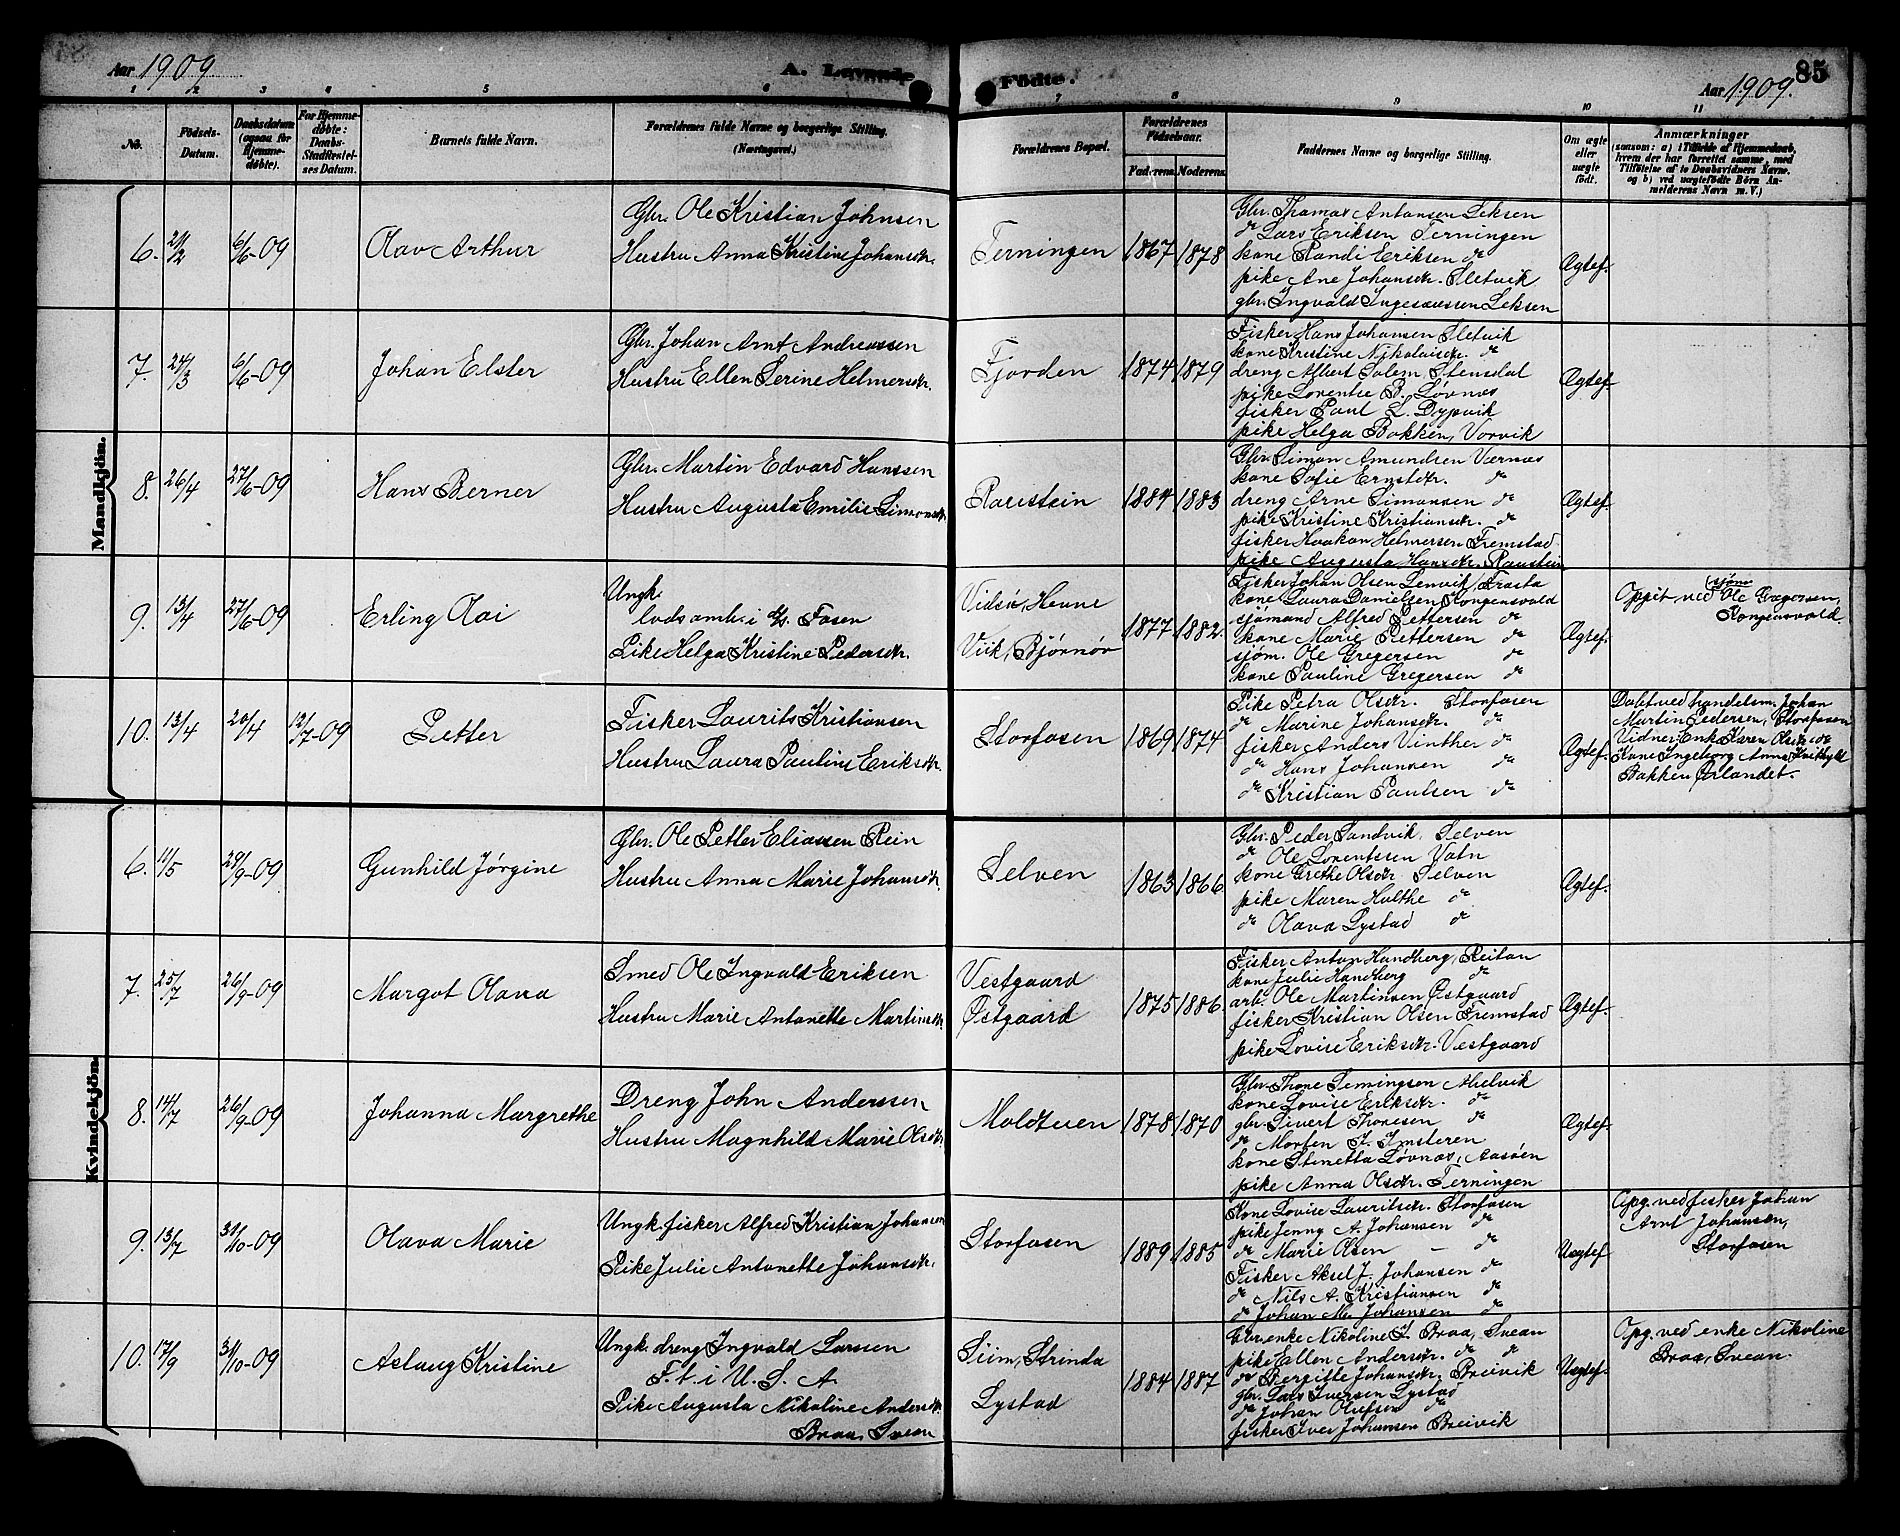 Aar 1909
A. Levende
Födte.
Aar 1909.
85
1 2 3 4 5 6 7 8 9 10 11
No.
Födsels-
Datum.
Daabsdatum
(ogsaa for
Hjemme-
døbte).
For Hjemme-
døbte:
Daabs-
Stadfæstel-
ses Datum.
Barnets fulde Navn.
Forældrenes fulde Navne og borgerlige Stilling.
(Næringsvei.)
Forældrenes Bopæl.
Forældrenes
Födselsaar.
Faderens. Moderens.
Faddernes Navne og borgerlige Stilling.
Om ægte
eller
uægte
født.
Anmærkninger
(saasom: a) i Tilfælde af Hjemmedaab,
hvem der har forrettet samme, med
Tilføielse af to Daabsvidners Navne,
og b) ved uægtefødte Börn An-
melderens Navn m. V.)
Mandkjön.
6. 21/2 6/6-09
Olav Arthur
Gbr. Ole Kristian Johnsen
Hustru Anna Kristine Johansdtr.
Terningen
1867 1878
Gbr. Thomas Antonsen Leksen
do Lars Eriksen Terningen
kone Randi Eriksen do
pike Ane Johansdtr. Sletvik
gbr. Ingvald Ingebrigtsen Leksen
Ægtef.
7. 24/3 6/6-09
Johan Elster
Gbr. Johan Arnt Andreassen
Hustru Ellen Serine Helmersdtr.
Fjorden
1874 1879
Fisker Hans Johansen Sletvik
kone Kristine Nikolaisdtr. do
dreng Albert Solem, Stensdal
pike Lorentse B. Løvnæs
fisker Paul L. Dypvik
pike Helga Bakken, Vorvik
Ægtef.
8. 26/4 27/6-09
Hans Berner
Gbr. Martin Edvard Hanssen
Hustru Augusta Emilie Simonsdtr.
Raustein
1884 1883
Gbr. Simon Amundsen Værnæs
kone Sofie Ernstdtr. do
dreng Arne Simonsen do
pike Kristine Kristiansdtr. do
fisker Haakon Helmersen Fremstad
pike Augusta Hansdtr. Raustein
Ægtef.
9. 13/4 27/6-09
Erling Olai
Ungk.
lods amb. i Fosen
Pike Helga Kristine Pedersdtr.
Hevne
Viik, Bjørnør
1877 1882.
Fisker Johan Olsen Lenvik, Frosta
kone Laura Danielsen Kongensvold
sjømand Alfred Pettersen do
kone Marie Pettersen do
sjøm. Ole Gregersen do
kone Pauline Gregersen do
Ægtef.
Opgit ved sjøm.
Ole Gregersen,
Kongensvold.
10. 13/4 20/4 12/7-09
Petter
Fisker Laurits Kristiansen
Hustru Laura Pauline Eriksdtr.
Storfosen
1869 1874
Pike Petra Olsdtr. Storfosen
do Marine Johansdtr. do
fisker Anders Vinther do
do Hans Johansen do
do Kristian Paulsen do
Ægtef.
Døbt ved handelsm. Johan
Martin Pedersen, Storfosen
Vidner: Enke Karen Olsdtr. do
Kone Ingeborg Anna Kvithyld
Bakken Ørlandet.
Kvindekjön.
6. 11/5 29/9-09
Gunhild Jørgine
Gbr. Ole Petter Eliassen Rein
Hustru Anna Marie Johansdtr.
Selven
1863 1866
Gbr. Peder Sandvik, Selven
do Ole Lorentsen Vatn
kone Grethe Olsdtr. Selven
pike Maren Holthe do
do Olava Lystad do
Ægtef.
7. 25/7 26/9-09
Margot Olava
Smed Ole Ingvald Eriksen
Hustru Marie Antonette Martinsdtr.
Vestgaard
Østgaard
1875 1886
Fisker Anton Handberg, Reitan
kone Julie Handberg do
arb. Ole Martinsen Østgaard
fisker Kristian Olsen Fremstad
pike Lovise Eriksdtr. Vestgaard
Ægtef.
8. 14/7 26/9-09
Johanna Margrethe
Dreng John Anderssen
Hustru Magnhild Marie Olsdtr.
Moldtuen
1878 1870
Gbr. Thone Semingsen Mælvik
kone Lovise Eriksdtr. do
gbr. Sivert Thonesen do
do Morten J. Imsteren
kone Stinetta Løvnæs, Aasøen
pike Anna Olsdtr. Terningen
Ægtef.
9. 13/7 31/10-09
Olava Marie
Ungk. fisker Alfred Kristian Johansen
Pike Julie Antonette Johansdtr.
Storfosen
1889 1885
Kone Lovise Lauritsdtr. Storfosen
pike Jenny A. Johansen do
do Marie Olsen - do
Fisker Aksel J. Johansen do
do Nils A. Kristiansen do
do Johan M. Johansen do
Uægtef.
Opg. ved fisker Johan
Arnt Johansen,
Storfosen
10. 17/9 31/10-09
Aslaug Kristine
Ungk. dreng Ingvald Larssen
F. t. i U. S. A.
Pike Augusta Nikoline Andersdtr.
Braa, Svean
Siim, Strinda
Lystad
1884 1887
Gbr. enke Nikoline J. Braa, Svean
pike Ellen Andersdtr. do do
do Bergitte Johansdtr. Breivik
gbr. Lars Iversen Lystad
do Johan Olufsen do
fisker Iver Johansen Breivik
Uægtef.
Opg. ved enke Nikoline
Braa, Svean.